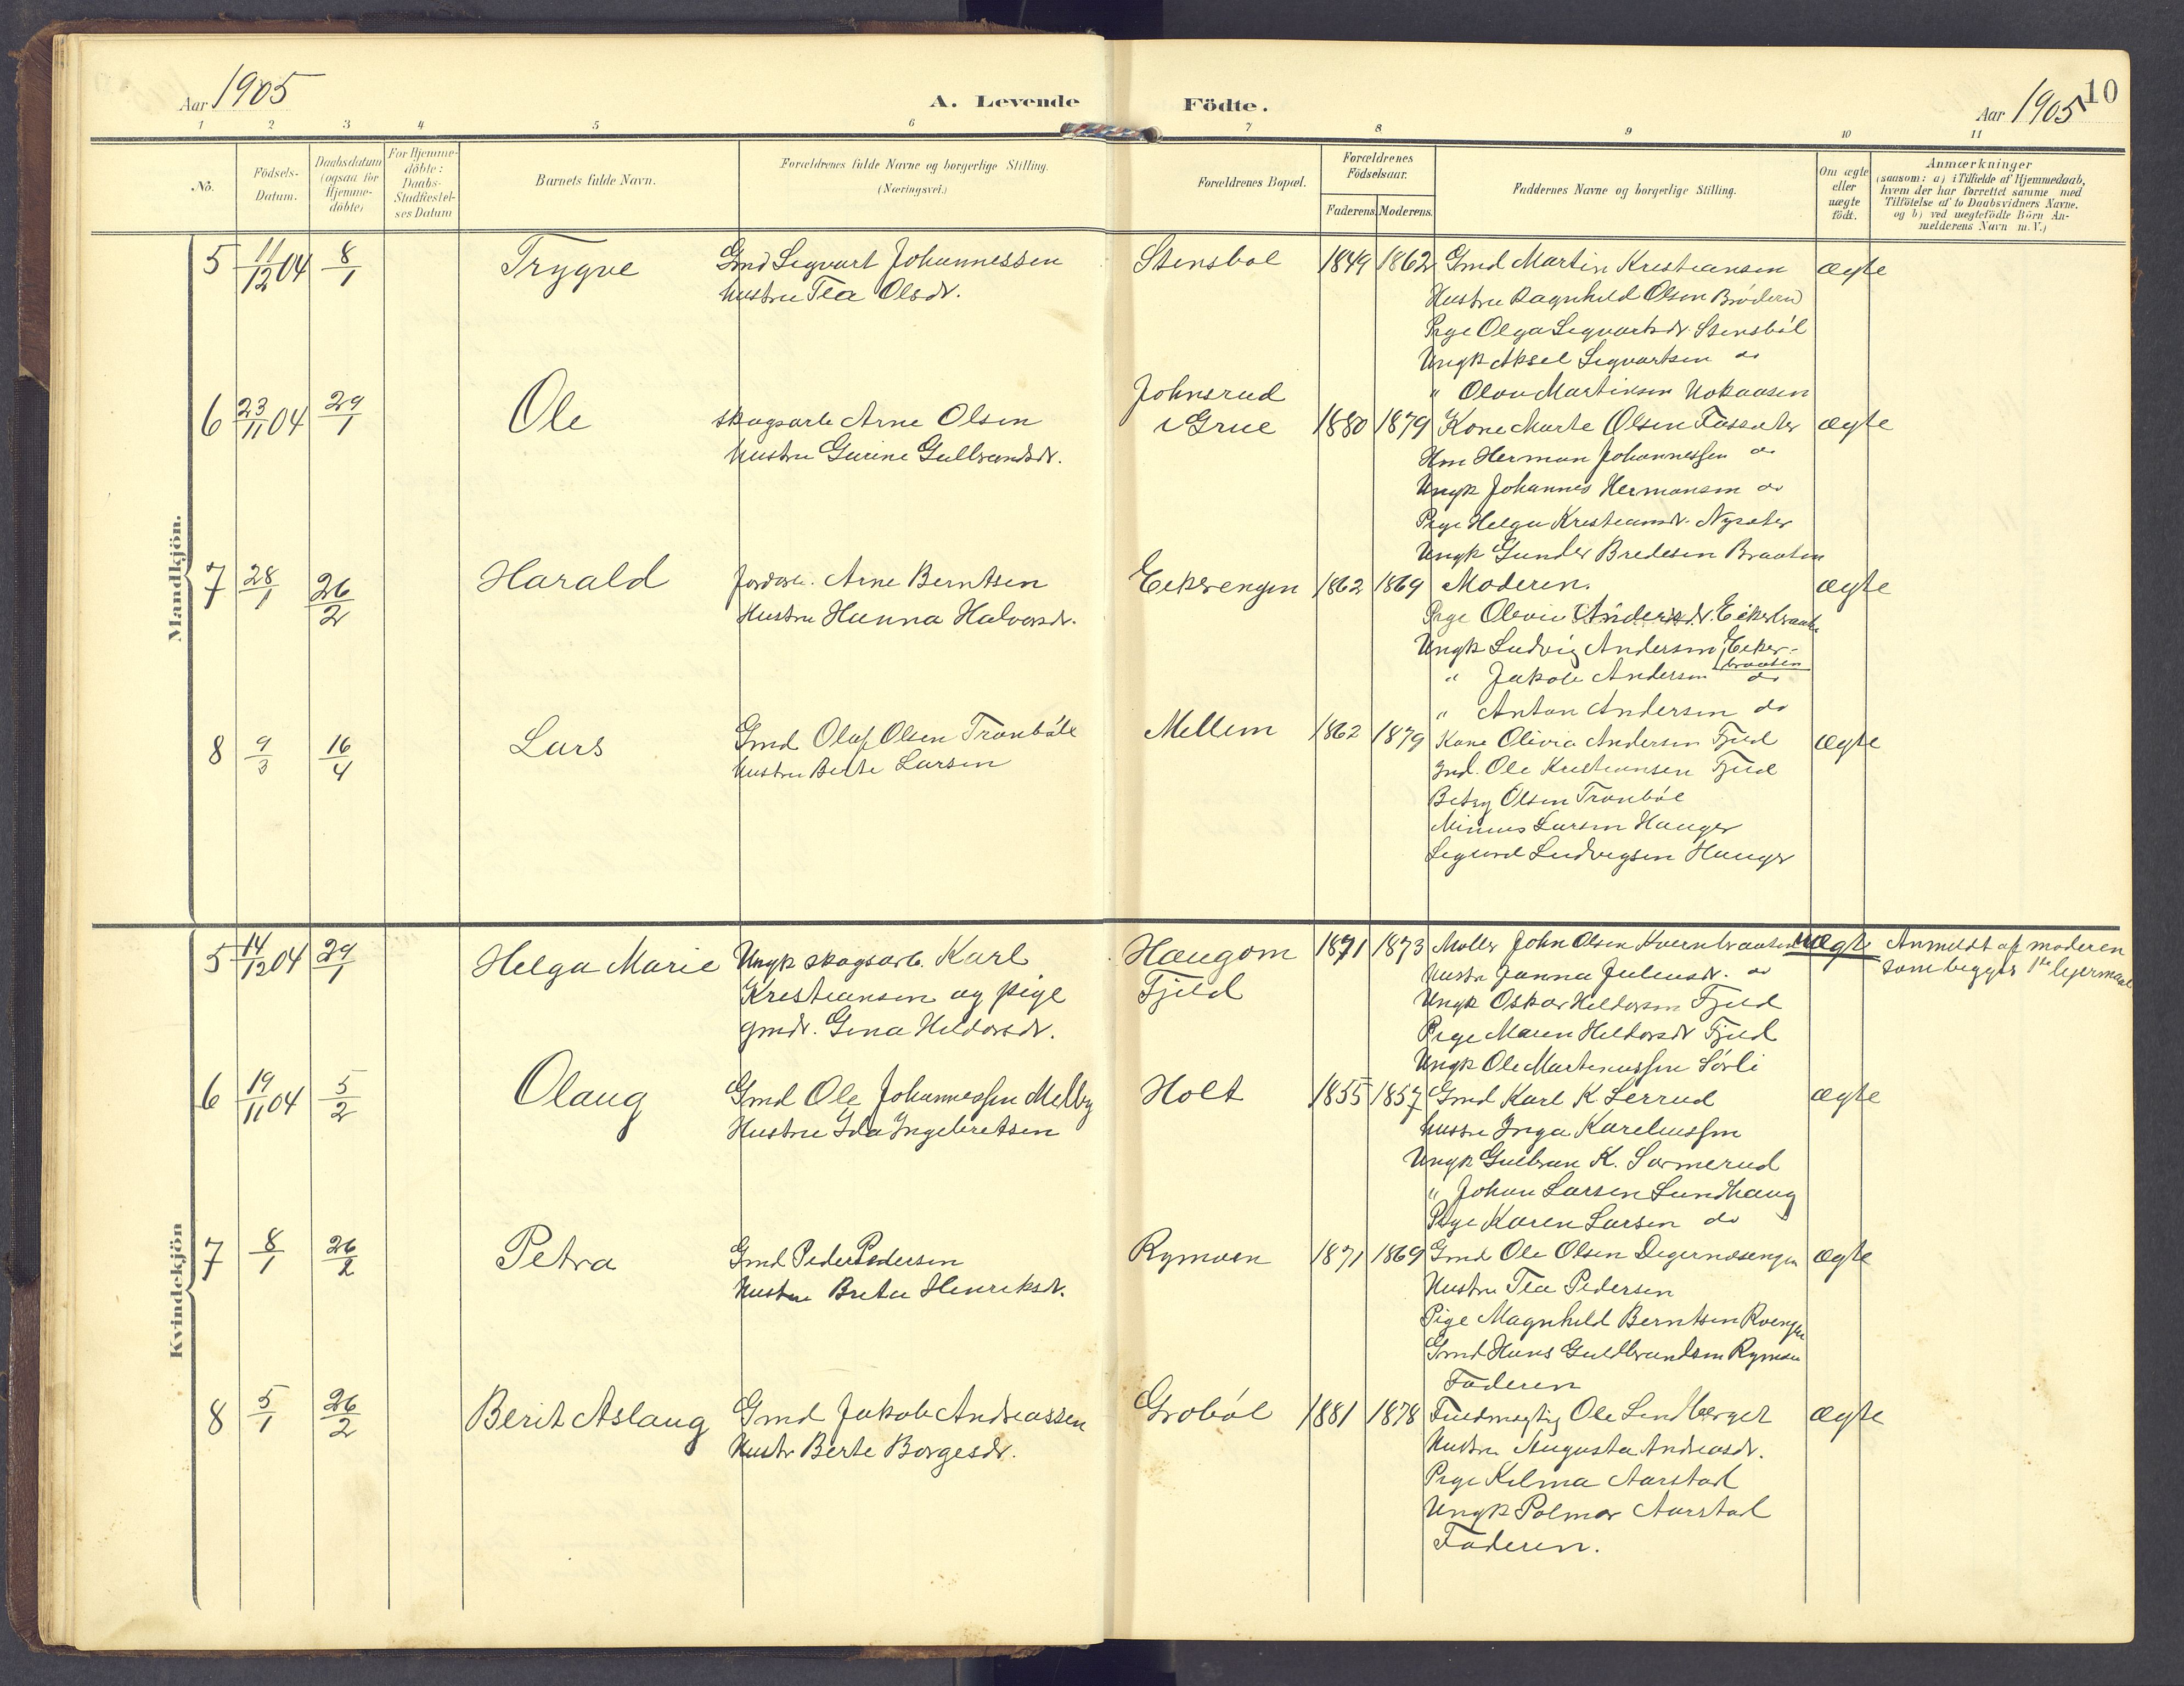 Aar 1905
A. Levende Födte.
Aar 1905
10
1 2 3 4 5 6 7 8 9 10 11
No.
Födsels-
Datum.
Daabsdatum
(ogsaa for
Hjemme-
döbte)
For Hjemme-
döbte:
Daabs-
Stadfæstel-
ses Datum
Barnets fulde Navn.
Forældrenes fulde Navne og borgerlige Stilling.
(Næringsvei.)
Forældrenes Bopæl.
Forældrenes
Födselsaar.
Faderens. Moderens.
Faddernes Navne og borgerlige Stilling.
Om ægte
eller
uægte
födt.
Anmærkninger
(saasom: a) i Tilfælde af Hjemmedaab,
hvem der har forrettet samme med
Tilföielse af to Daabsvidners Navne,
og b) ved uægtefödte Börn An-
melderens Navn m. V.)
Mandkjön.
5 11/12 04 8/1 Trygve
Gmd Sigvart Johannessen
Hustru Tea Olsdr.
Stensbøl 1849 1862
Gmd Martin Kristiansen
Hustru Ragnhild Olsen
Pige Olga Sigvartsdr. Stensböl
Ungk Aksel Sigvartsen do
" Martinsen
ægte
6 23/11 04 29/1 Ole
Skogsarb Arne Olsen
Hustru Gurine Gulbrandsdr.
Johnsrud
i Grue 1880 1879
Kone Marte Olsen
Herman Johannessen do
Ungk Johannes Hermansen do
Pige Helga Kristiansdr. Nysæter
Ungk Gunder Bredesen Braaten
ægte
7 28/1 26/2 Harald
Jordarb. Arne Berntsen
Hustru Hanna Halvorsdr.
Eekerengen 1862 1869
Moderen.
Pige Andersdr.
Ungk Ludvig Andersen Eeker-
braaten
" Jakob Andersen do
" Anton Andersen do
ægte
8 9/3 16/4 Lars
Gmd Olaf Olsen Tranböl
Hustru Berte Larsen
Mellem 1862 1879
Kone Olivia Andersen Fjeld
Ind. Ole Kristiansen Fjeld
Betsy Olsen Tranböl
Larsen Hauger
Sigurd Ludvigsen Hauger
ægte
Kvindekjön
5 14/12 04 29/1 Helga Marie
Ungk skogsarb. Karl
Kristiansen og pige
gmdr. Gina Hildorsdr.
Haugom
Fjeld 1871 1873
Møller John Olsen Kvernbraaten
Hustr Janna Juliusdr. do
Ungk Oskar Hildorsen Fjeld
Pige Maren Hildorsdr Fjeld
Ungk Ole Martinussen Sörli
uægte
Anmeldt af moderen
som begges 1ste lejermaal
6 19/11 04 5/2 Olaug
Gmd Ole Johannessen Melby
Hustru Ida Ingebretsen
Holt 1855 1857
Gmd Karl K Lerrud
Hustru Inga Kareliussen
Ungk Gulbran K. Sormerud
" Johan Larsen Sundhaug
Pige Karen Larsen do
ægte
7 8/1 26/2 Petra
Gmd Peder Pedersen
Hustru Brita Henriksdr.
Rymoen 1871 1869
Gmd Ole Olsen Digernæsengen
Hustru Tea Pedersen
Pige Magnhild Berntsen
Gmd Hans Guldbrandsen Rymoen
Faderen
ægte
8 5/1 26/2 Berit Aslaug
Gmd Jakob Andreassen
Hustr Berte Borgesdr.
Groböl 1881 1878
Fuldmægtig Ole Lindberget
Hustru Augusta Andreasdr.
Pige Kilma Aarstad
Ungk Palmar Aarstad
Faderen.
ægte